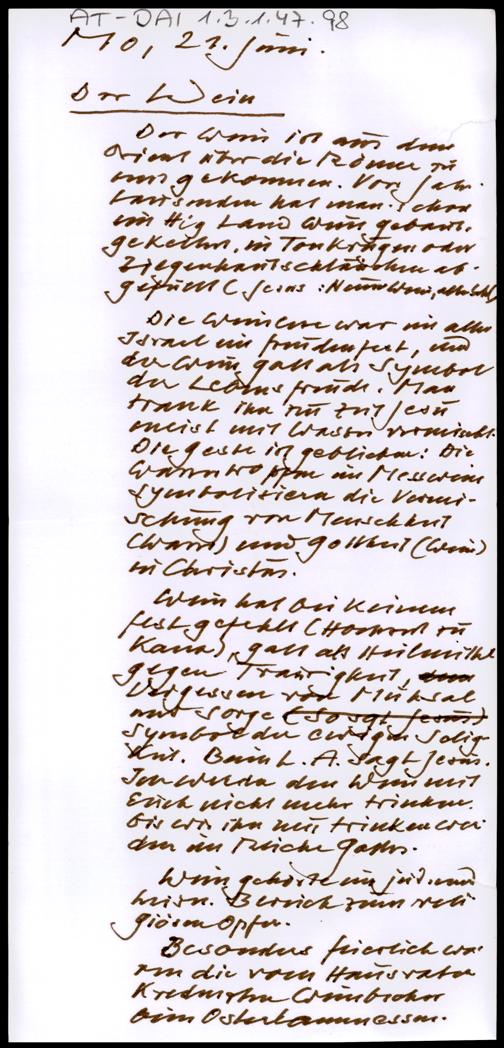 AT-DAI 1.3.1.47.98
Mo, 21. Juni.
Der Wein
Der Wein ist aus dem
Orient über die Römer zu
uns gekommen. Vor Jahr-
tausenden hat man schon
im Hlg Land Wein gebaut,
gekeltert, in Tonkrügen oder
Ziegenhautschläuchen ab-
gefüllt (Jesus: Neuen Wein, alte Schl
Die Weinlese war im alten
Israel ein Freudenfest, und
der Wein galt als Symbol
der Lebensfreude. Man
trank ihn zur Zeit Jesu
meist mit Wasser vermischt.
Die Geste ist geblieben: Die
Wassertropfen im Messwein
symbolisieren die Vermi-
schung von Menschheit
(Wasser) und Gottheit (Wein)
in Christus.
Wein hat bei keinem
Fest gefehlt (Hochzeit zu
Kana), galt als Heilmittel
gegen Traurigkeit,
Vergessen von Mühsal
und Sorge (so sagt Jesus)
Symbol der ewigen Selig-
keit. Beim L. A. sagt Jesus.
Ich werde den Wein mit
Euch nicht mehr trinken.
bis wir ihn neu trinken wer-
den im Reiche Gottes.
Wein gehörte im jüd. und
heidn. Bereich zum reli-
giösen Opfer.
Besonders feierlich wa-
ren die vom Hausvater
Weinbecher
beim Osterlammessen.